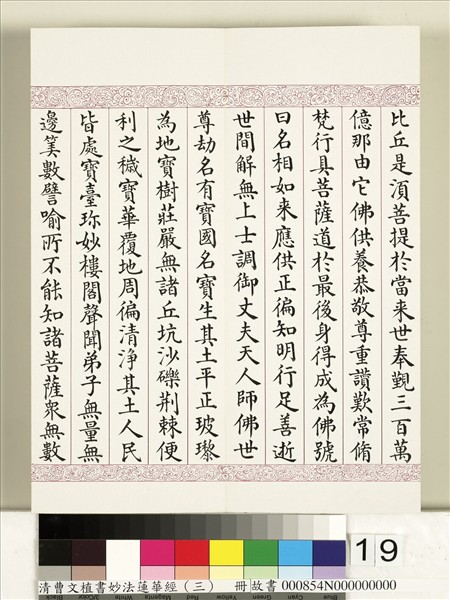 比丘是湏菩提於當来世奉覲三百萬
億那由它佛供養恭敬尊重讚歎常脩
梵行具菩薩道於最後身得成為佛號
曰名相如来應供正徧知明行足善逝
世間解無上士調御丈夫天人師佛世
尊劫名有寶國名寶生其土平正玻瓈
為地寶樹莊嚴無諸丘坑沙礫荆棘便
利之穢寶華覆地周徧清淨其土人民
皆處寶臺珎妙樓閣聲聞弟子無量無
邊筭數譬喻所不能知諸菩薩衆無數
19
清曹文植書妙法蓮華經（三） 冊 故書 000854N000000000